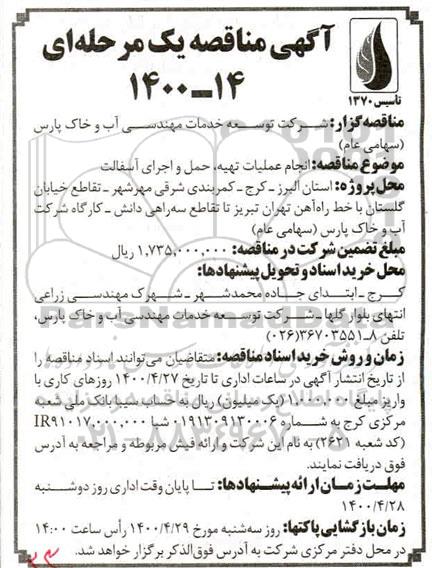 آگهی مناقصه یک مرحله‌ای
۱۴ــ۱۴۰۰
تاسیس ۱۳۷۰
مناقصه‌گزار: شرکت توسعه خدمات مهندسی آب و خاک پارس
(سهامی عام)
موضوع مناقصه: انجام عملیات تهیه، حمل و اجرای آسفالت
محل پروژه: استان البرز ـ کرج ـ کمربندی شرقی مهرشهر ـ تقاطع خیابان
گلستان با خط راه‌آهن تهران تبریز تا تقاطع سه‌راهی دانش ـ کارگاه شرکت
آب و خاک پارس (سهامی عام)
مبلغ تضمین شرکت در مناقصه: ۱,۷۳۵,۰۰۰,۰۰۰ ریال
محل خرید اسناد و تحویل پیشنهادها:
کرج ـ ابتدای جاده محمدشهر ـ شهرک مهندسی زراعی
انتهای بلوار گلها ـ شرکت توسعه خدمات مهندسی آب و خاک پارس،
تلفن ۸ـ۳۶۷۰۳۵۵۱(۰۲۶)
زمان و روش خرید اسناد مناقصه: متقاضیان می‌توانند اسناد مناقصه را
از تاریخ انتشار آگهی در ساعات اداری تا تاریخ ۱۴۰۰/۴/۲۷ روزهای کاری با
واریز مبلغ ۱,۰۰۰,۰۰۰ (یک میلیون) ریال به حساب سیبا بانک ملی شعبه
مرکزی کرج به شماره ۰۱۹۱۳۰۹۱۳۰۰۰۶ شبا IR۹۱۰۱۷۰۰۰۰۰۰۰
(کد شعبه ۲۶۲۱) به نام این شرکت و ارائه فیش مربوطه و مراجعه به آدرس
فوق دریافت نمایند.
مهلت زمان ارائه پیشنهادها: تا پایان وقت اداری روز دوشنبه
۱۴۰۰/۴/۲۸
زمان بازگشایی پاکتها: روز سه‌شنبه مورخ ۱۴۰۰/۴/۲۹ رأس ساعت ۱۴:۰۰
در محل دفتر مرکزی شرکت به آدرس فوق‌الذکر برگزار خواهد شد.